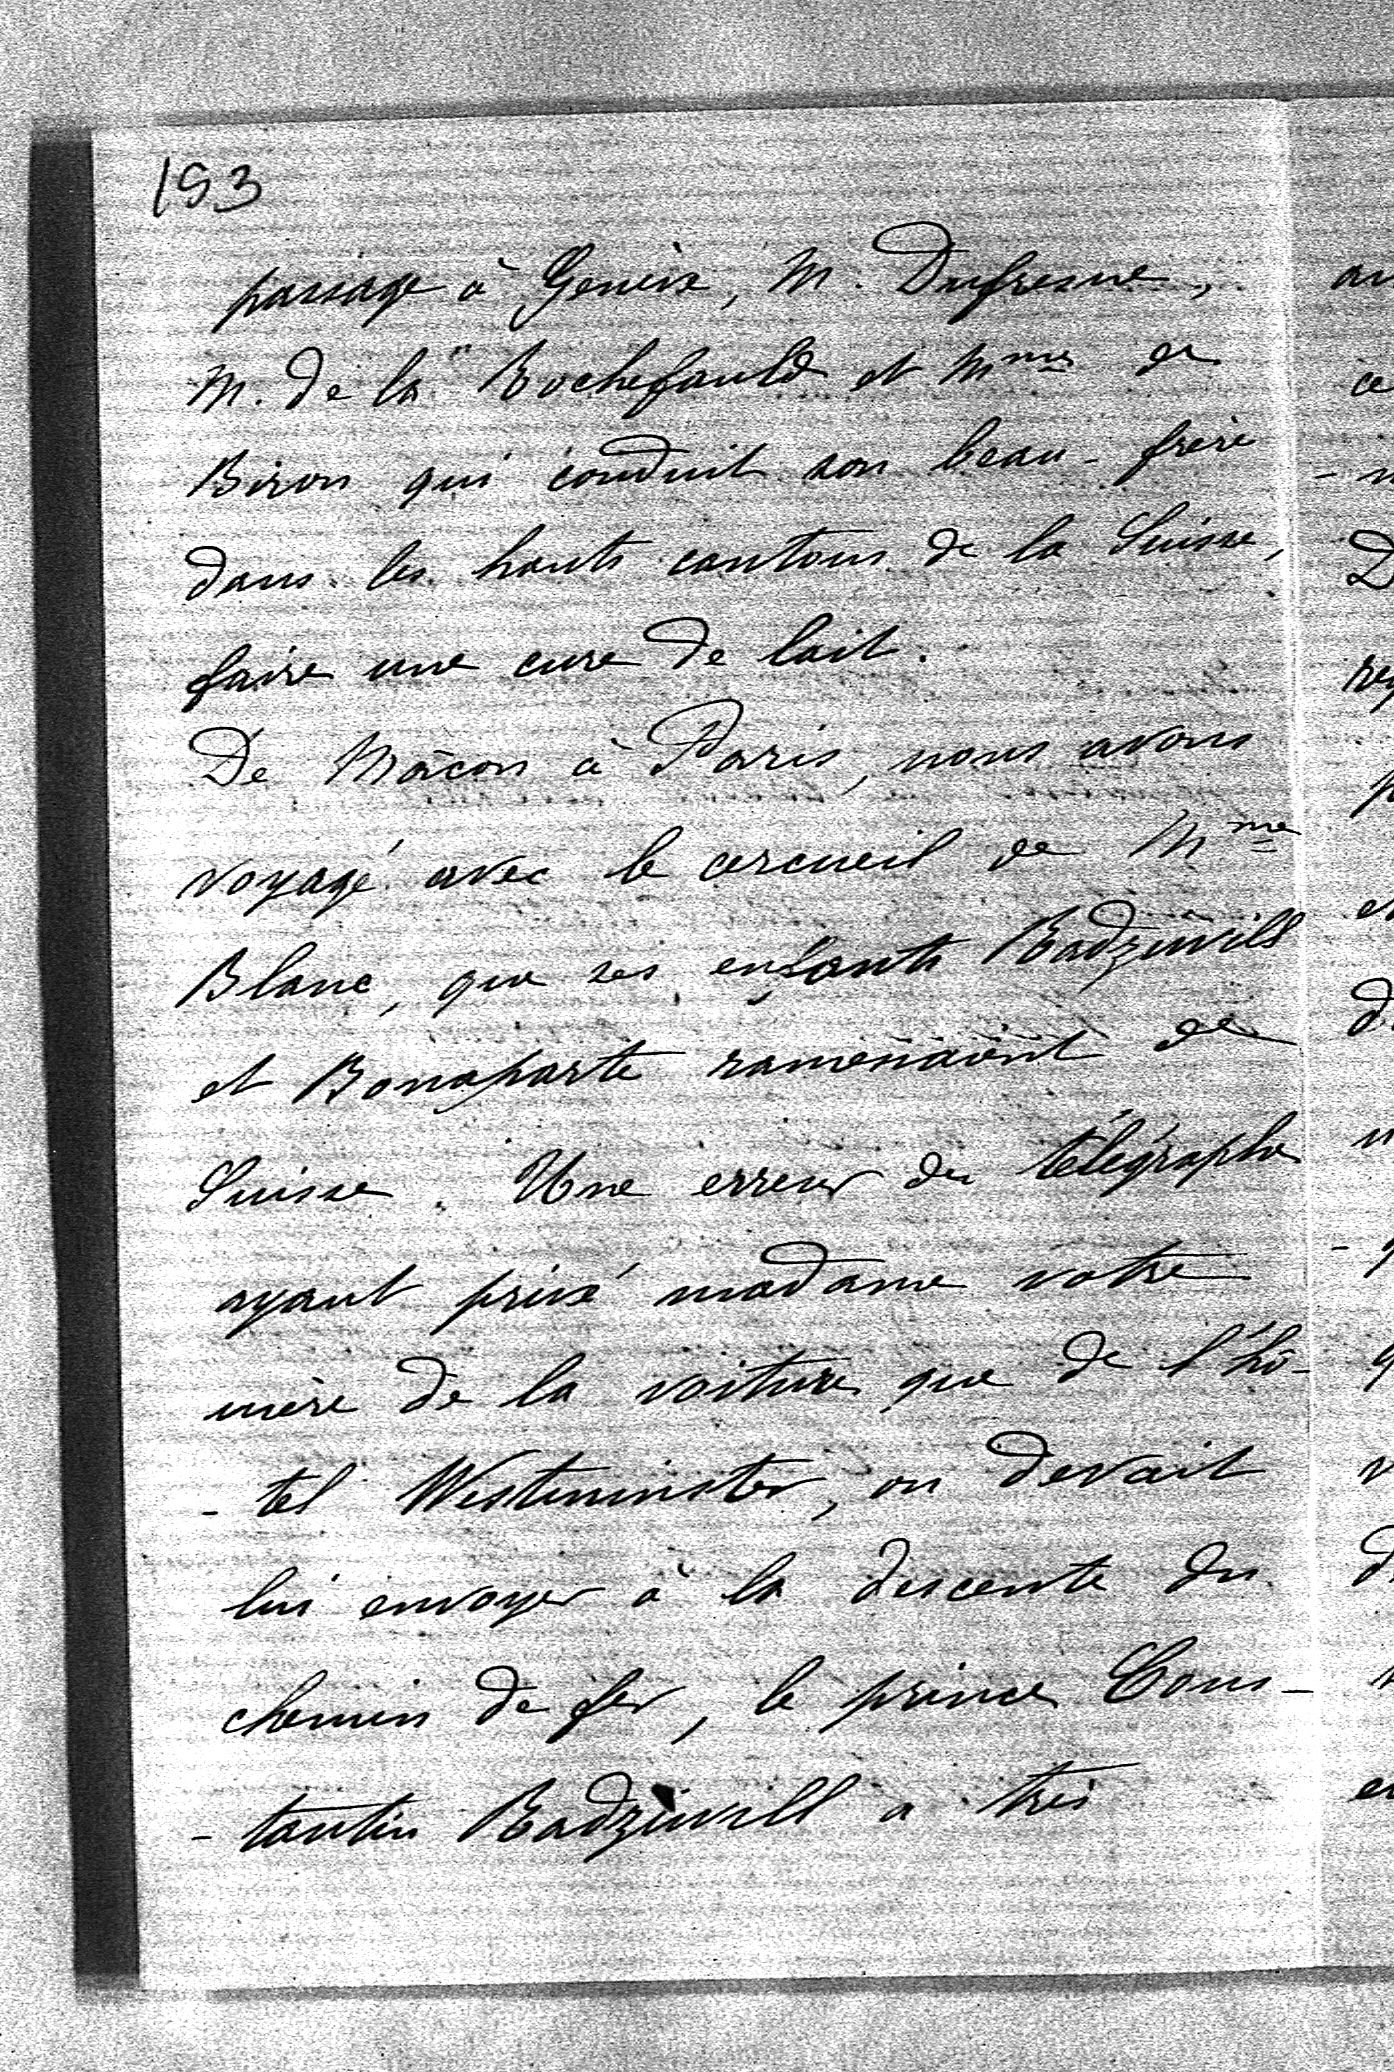 153
passage à Genève, M. Dufresne,
M. de la Rochefauld et Mme de
Biron qui conduit son beau-frère
dans les hauts cantons de la Suisse,
faire une cure de lait.
De Mâcon à Paris, nous avons
voyagé avec le cercueil de Mme
Blanc, que ses enfants Radziwill
et Bonaparte ramenaient de
Suisse. Une erreur du télégraphe
ayant privé madame votre
mère de la voiture que de l'hô-
-tel Westminster, on devait
lui envoyer à la descente du
chemin de fer, le prince Cons-
-tantin Radziwill a très